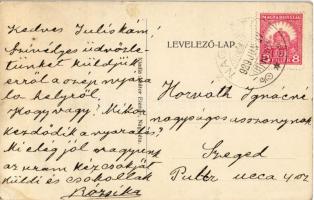 Kedves Juliskám!
Szívélyes üdvözle-
tünket küldjük
erről a szép nyara-
ló helyről.
Hogy vagy? Mikor
kezdődik a nyaralás?
Mi elég jól vagyunk
az uram kézcsókját
küldi és csókollak
Rózsika
LEVELEZŐ-LAP
MAGYARORSZÁG
8
Horváth Ignácné
nagyságos asszonynak
Szeged
ucca